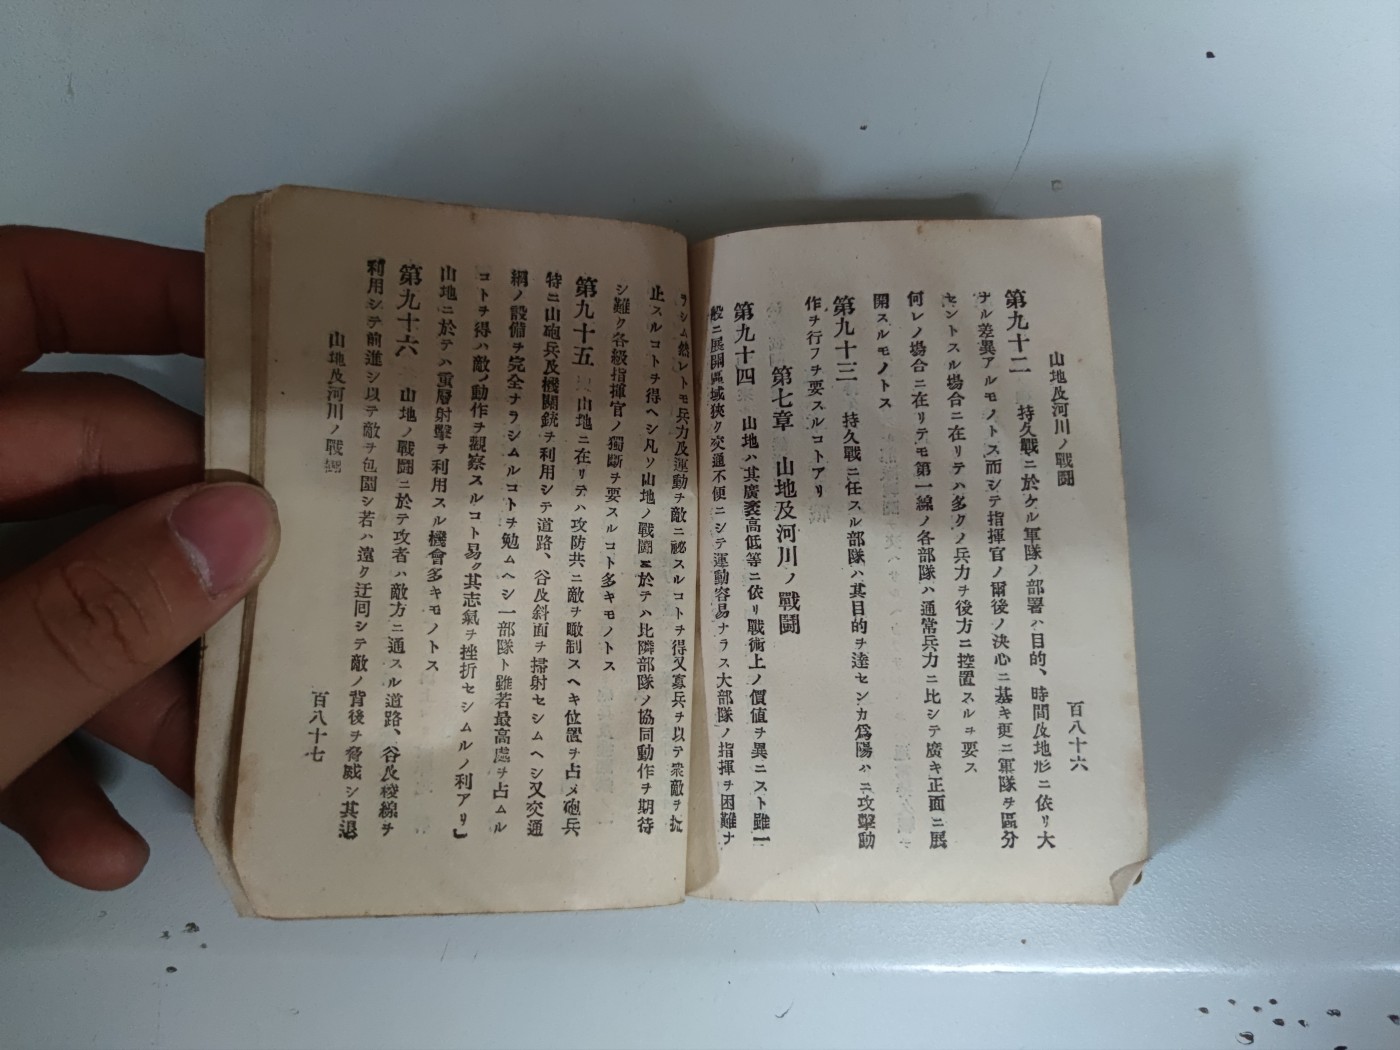 山地及河川ノ戰鬪
百八十六
第九十二 持久戰ニ於ケル軍隊ノ部署ハ目的、時間及地形ニ依リ大
ナル差異アルモノトス而シテ指揮官ノ爾後ノ決心ニ基キ更ニ軍隊ヲ區分
セントスル場合ニ在リテハ多クノ兵力ヲ後方ニ控置スルヲ要ス
何レノ場合ニ在リテモ第一線ノ各部隊ハ通常兵力ニ比シテ廣キ正面ニ展
開スルモノトス
第九十三 持久戰ニ任スル部隊ハ其目的ヲ達センカ爲陽ハニ攻擊動
作ヲ行フヲ要スルコトアリ
第七章 山地及河川ノ戰鬪
第九十四 山地ハ其廣袤高低等ニ依リ戰術上ノ價値ヲ異ニスト雖一
般ニ展開區域狹ク交通不便ニシテ運動容易ナラス大部隊ノ指揮ヲ困難ナ
ラシム然レトモ兵力及運動ヲ敵ニ祕スルコトヲ得又寡兵ヲ以テ衆敵ヲ拒
止スルコトヲ得ヘシ凡ソ山地ノ戰鬪ニ於テハ比隣部隊ノ協同動作ヲ期待
シ難ク各級指揮官ノ獨斷ヲ要スルコト多キモノトス
第九十五 山地ニ在リテハ攻防共ニ敵ヲ瞰制スヘキ位置ヲ占メ砲兵
特ニ山砲兵及機關銃ヲ利用シテ道路、谷及斜面ヲ掃射セシムヘシ又交通
網ノ設備ヲ完全ナラシムルコトヲ勉ムヘシ一部隊ト雖若最高處ヲ占ムル
コトヲ得ハ敵ノ動作ヲ觀察スルコト易ク其志氣ヲ挫折セシムルノ利アリ
山地ニ於テハ重層射擊ヲ利用スル機會多キモノトス
第九十六 山地ノ戰鬪ニ於テ攻者ハ敵方ニ通スル道路、谷及稜線ヲ
利用シテ前進シ以テ敵ヲ包圍シ若ハ遠ク迂囘シテ敵ノ背後ヲ脅威シ其退
山地及河川ノ戰鬪
百八十七